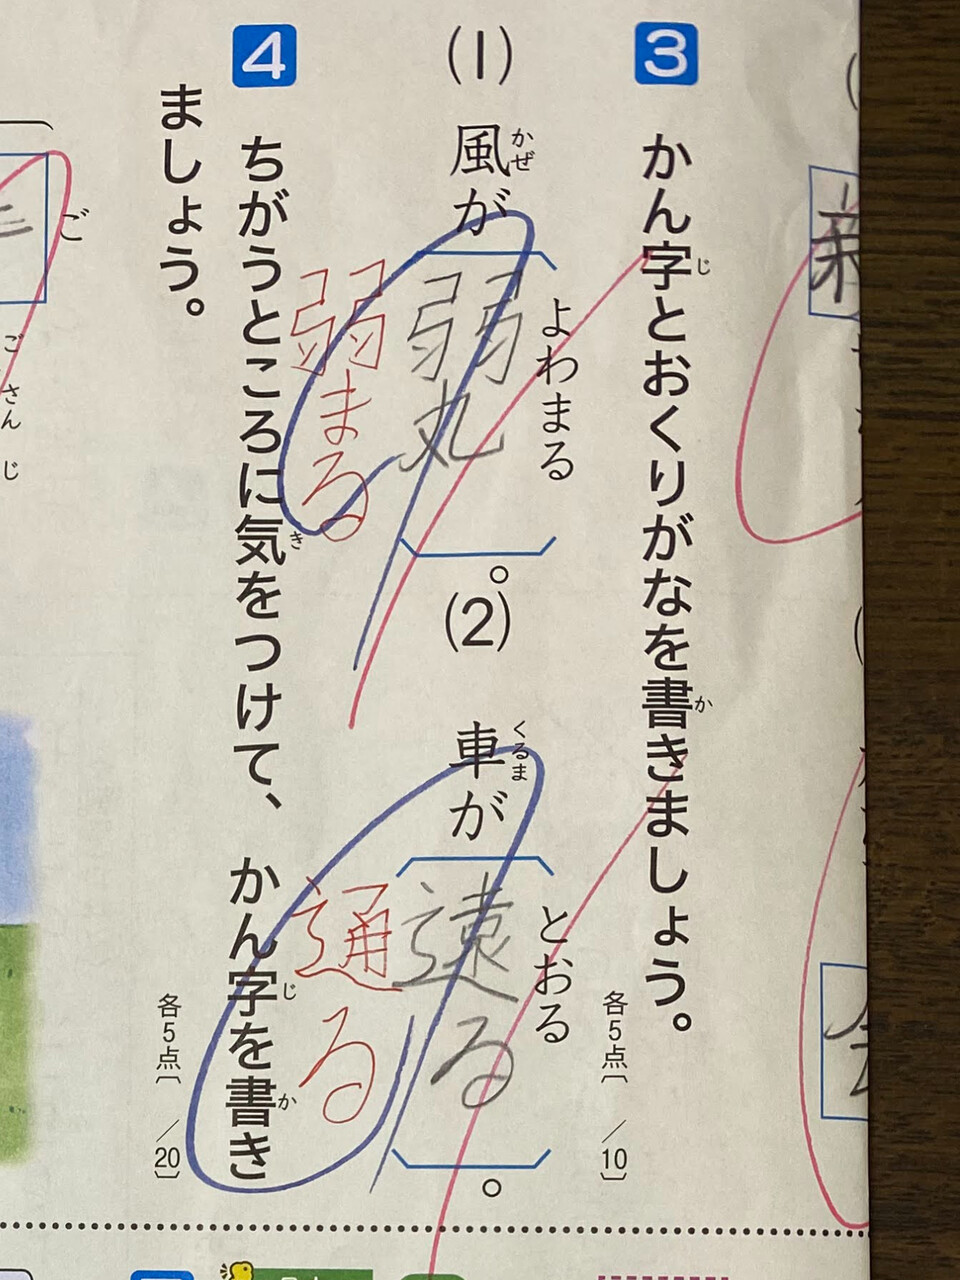 3 かん字とおくりがなを書きましょう。
じ
か
各5点〔 ／10〕
(1) 風が〔弱丸〕。
かぜ
よわまる
弱まる
(2) 車が〔遠る〕。
くるま
とおる
通る
4 ちがうところに気をつけて、かん字を書き
き
じ
か
ましょう。
各5点〔 ／20〕
ご
ごさんじ